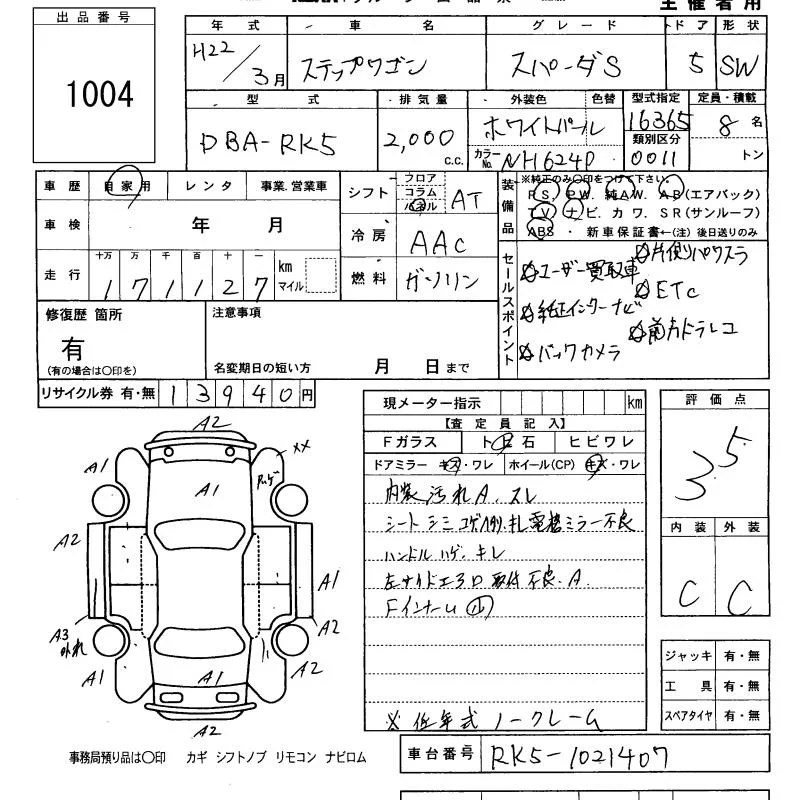 主催者用
出品番号
1004
年式 車名 グレード ドア 形状
H22/3月 ステップワゴン スパーダS 5 SW
型式 排気量 外装色 色替 型式指定 定員・積載
DBA-RK5 2,000 c.c. ホワイトパール 16365 8名
カラーNo. NH624P 類別区分 0011 トン
車歴 自家用 レンタ 事業.営業車
車検 年 月
走行 十万 万 千 百 十 一 km マイル
171127
シフト フロア コラム パネル AT
冷房 AAC
燃料 ガソリン
装備品 ※純正のみ〇印をつけて下さい.
PS, PW. 純AW. AB(エアバック)
TV ナビ. カワ. SR(サンルーフ)
ABS ・ 新車保証書←(注) 後日送りのみ
セールスポイント
ユーザー買取車
片側パワスラ
純正インターナビ
ETC
バックカメラ
前方ドラレコ
修復歴 箇所
有
(有の場合は〇印を)
注意事項
名変期日の短い方 月 日まで
リサイクル券 有・無 13940円
現メーター指示 km
【査定員記入】
Fガラス ト 石 ヒビワレ
ドアミラー キズ・ワレ ホイール(CP) キズ・ワレ
内装汚れA.スレ
シート シミ コゲ
電格ミラー不良
ハンドル ハゲ、キレ
左サイドエアロ取付不良.A
Fインナー
※低年式ノークレーム
評価点
3.5
内装 外装
C C
ジャッキ 有・無
工具 有・無
スペアタイヤ 有・無
A2
A1
XX
A1
A2
A1
A3
外れ
A2
A1
A1
A2
A2
事務局預り品は〇印 カギ シフトノブ リモコン ナビロム
車台番号 RK5-1021407